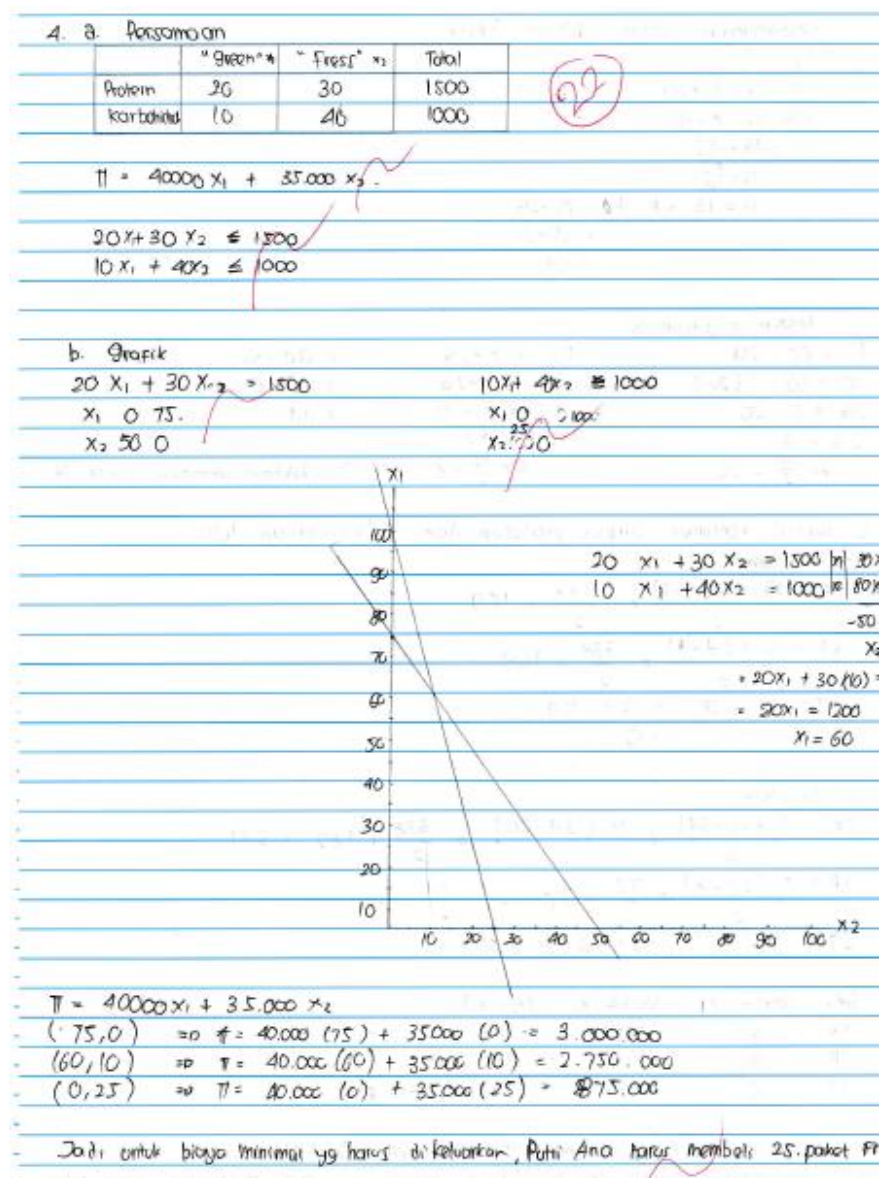 4. a. Persamaan
"Green" x1 "Fress" x2 Total
Protein 20 30 1500
Karbohidrat 10 40 1000
22
π = 40000 x1 + 35.000 x2.
20x1+30 x2 ≤ 1500
10 x1 + 40x2 ≤ 1000
b. Grafik
20 x1 + 30 x2 = 1500
x1 0 75.
x2 50 0
10x1+ 40x2 = 1000
x1 0 100
x2 25 0
x1
100
90
80
70
60
50
40
30
20
10
10 20 30 40 50 60 70 80 90 100 x2
20 x1 + 30 x2 = 1500
10 x1 + 40x2 = 1000
-50
= 20x1 + 30(10) =
= 20x1 = 1200
x1 = 60
π = 40000x1 + 35.000 x2
(75,0) => π = 40.000 (75) + 35000 (0) = 3.000.000
(60,10) => π = 40.000 (60) + 35.000 (10) = 2.750.000
(0,25) => π = 40.000 (0) + 35.000 (25) = 875.000
Jadi untuk biaya minimal yg harus dikeluarkan, Putri Ana harus membeli 25.paket